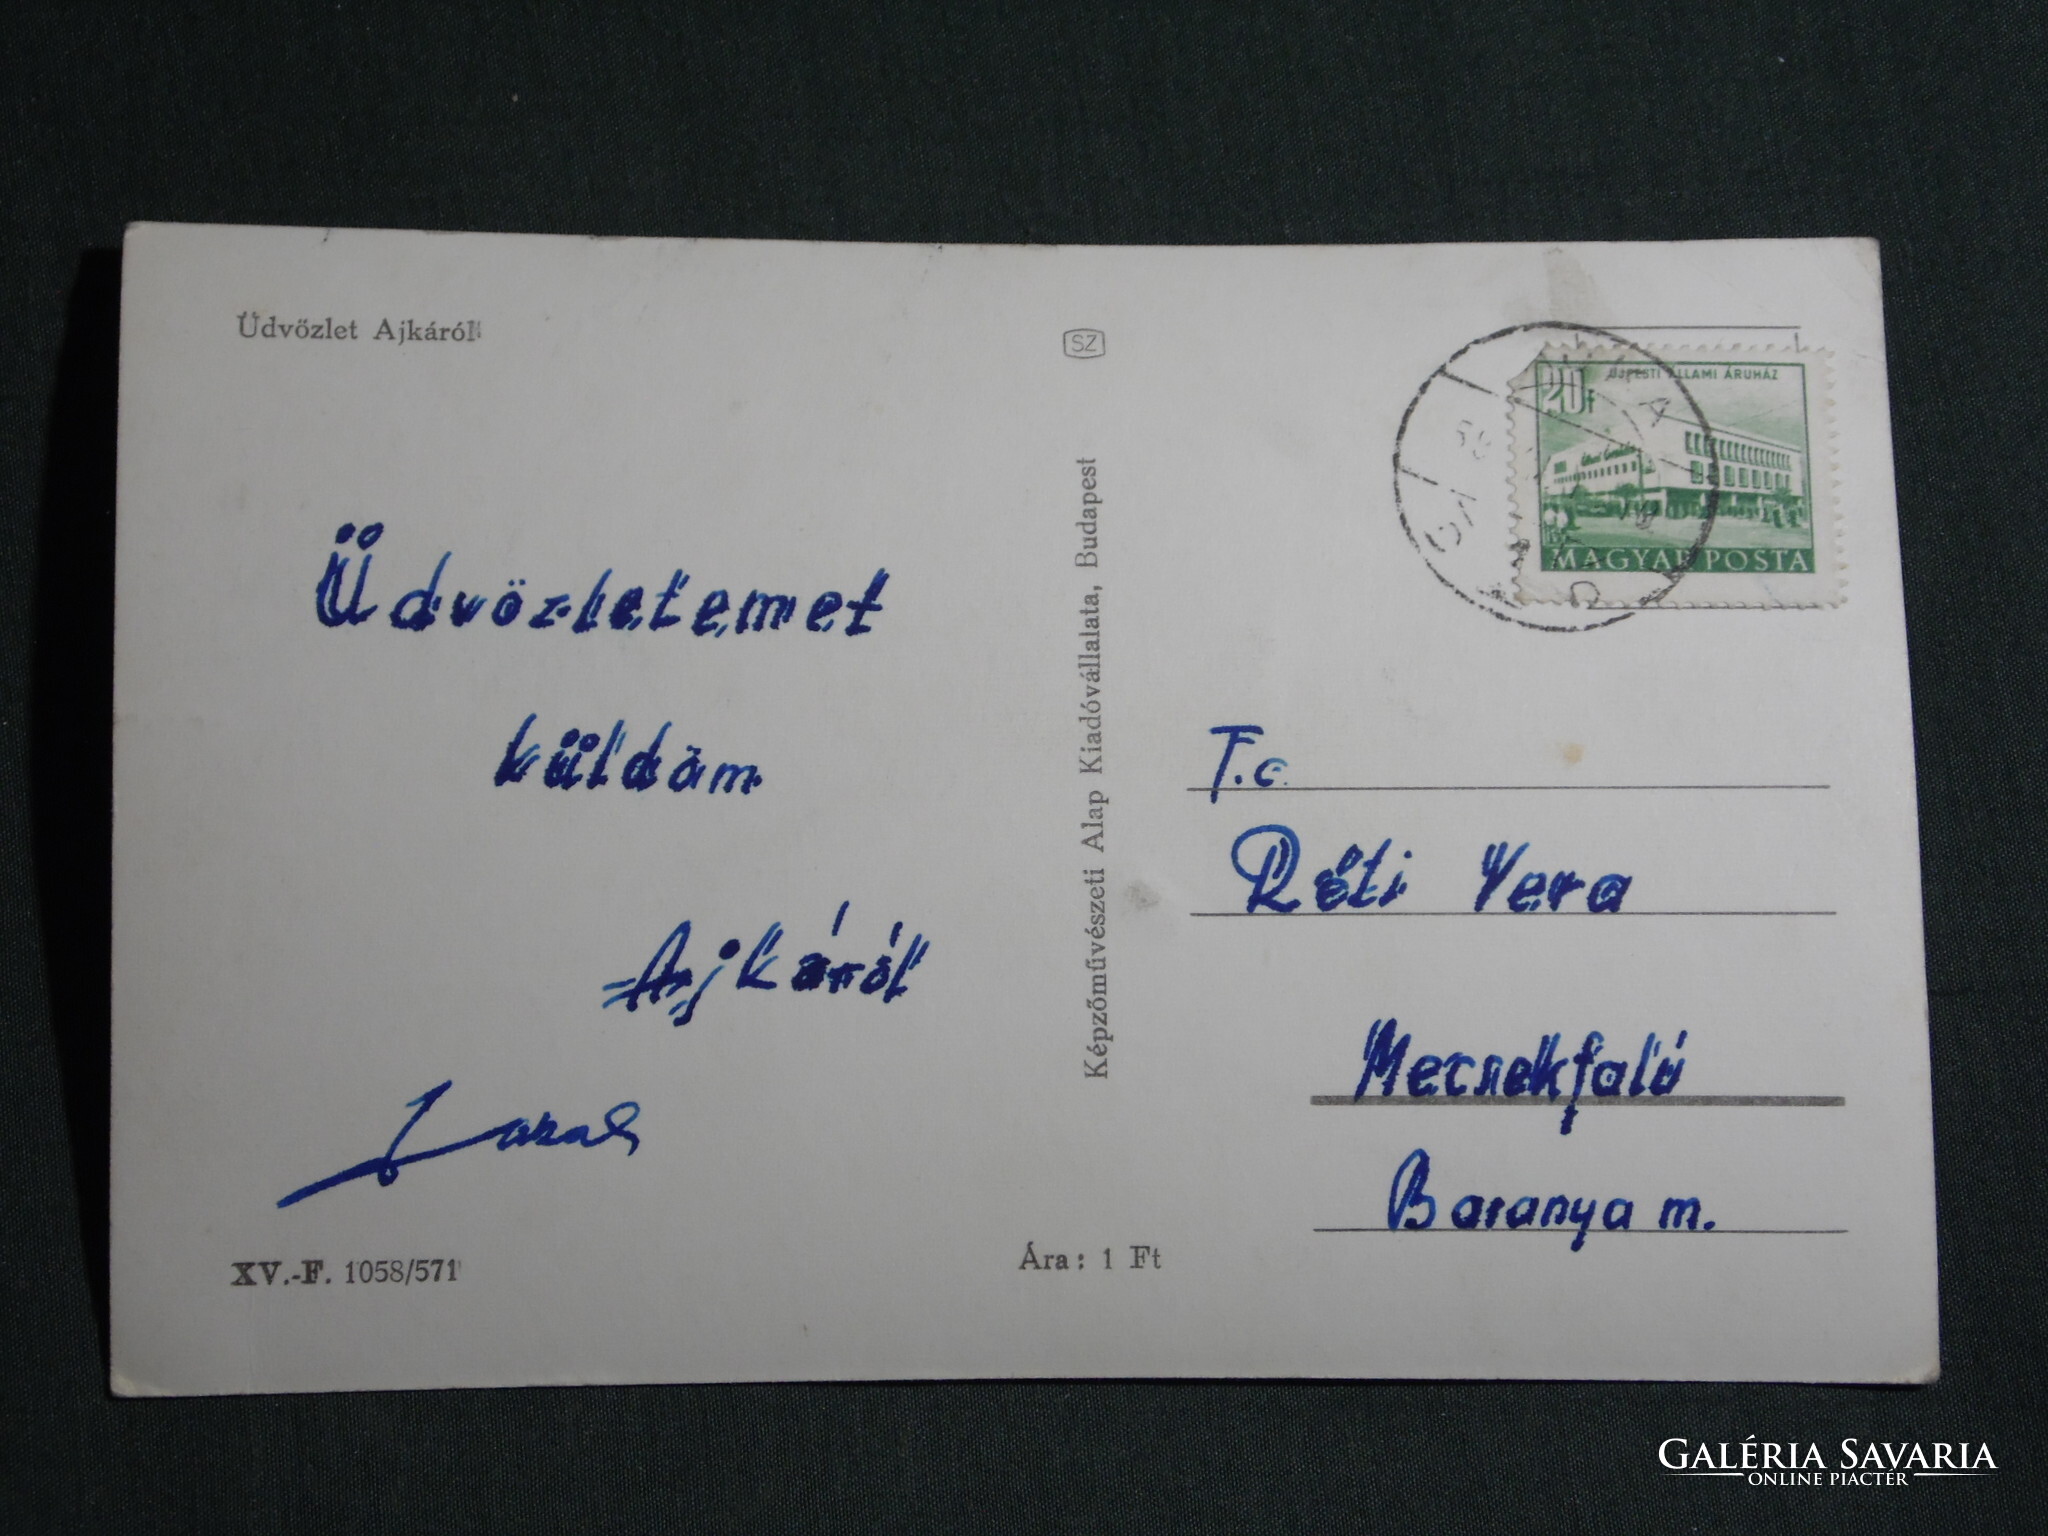 Üdvözlet Ajkáról
SZ
20f
ÚJPESTI ÁLLAMI ÁRUHÁZ
MAGYAR POSTA
Üdvözletemet
küldöm
Ajkáról
Képzőművészeti Alap Kiadóvállalata, Budapest
T.c.
Réti Vera
Mecsekfalú
Baranya m.
XV.-F. 1058/571
Ára: 1 Ft
GALÉRIA SAVARIA
ONLINE PIACTÉR